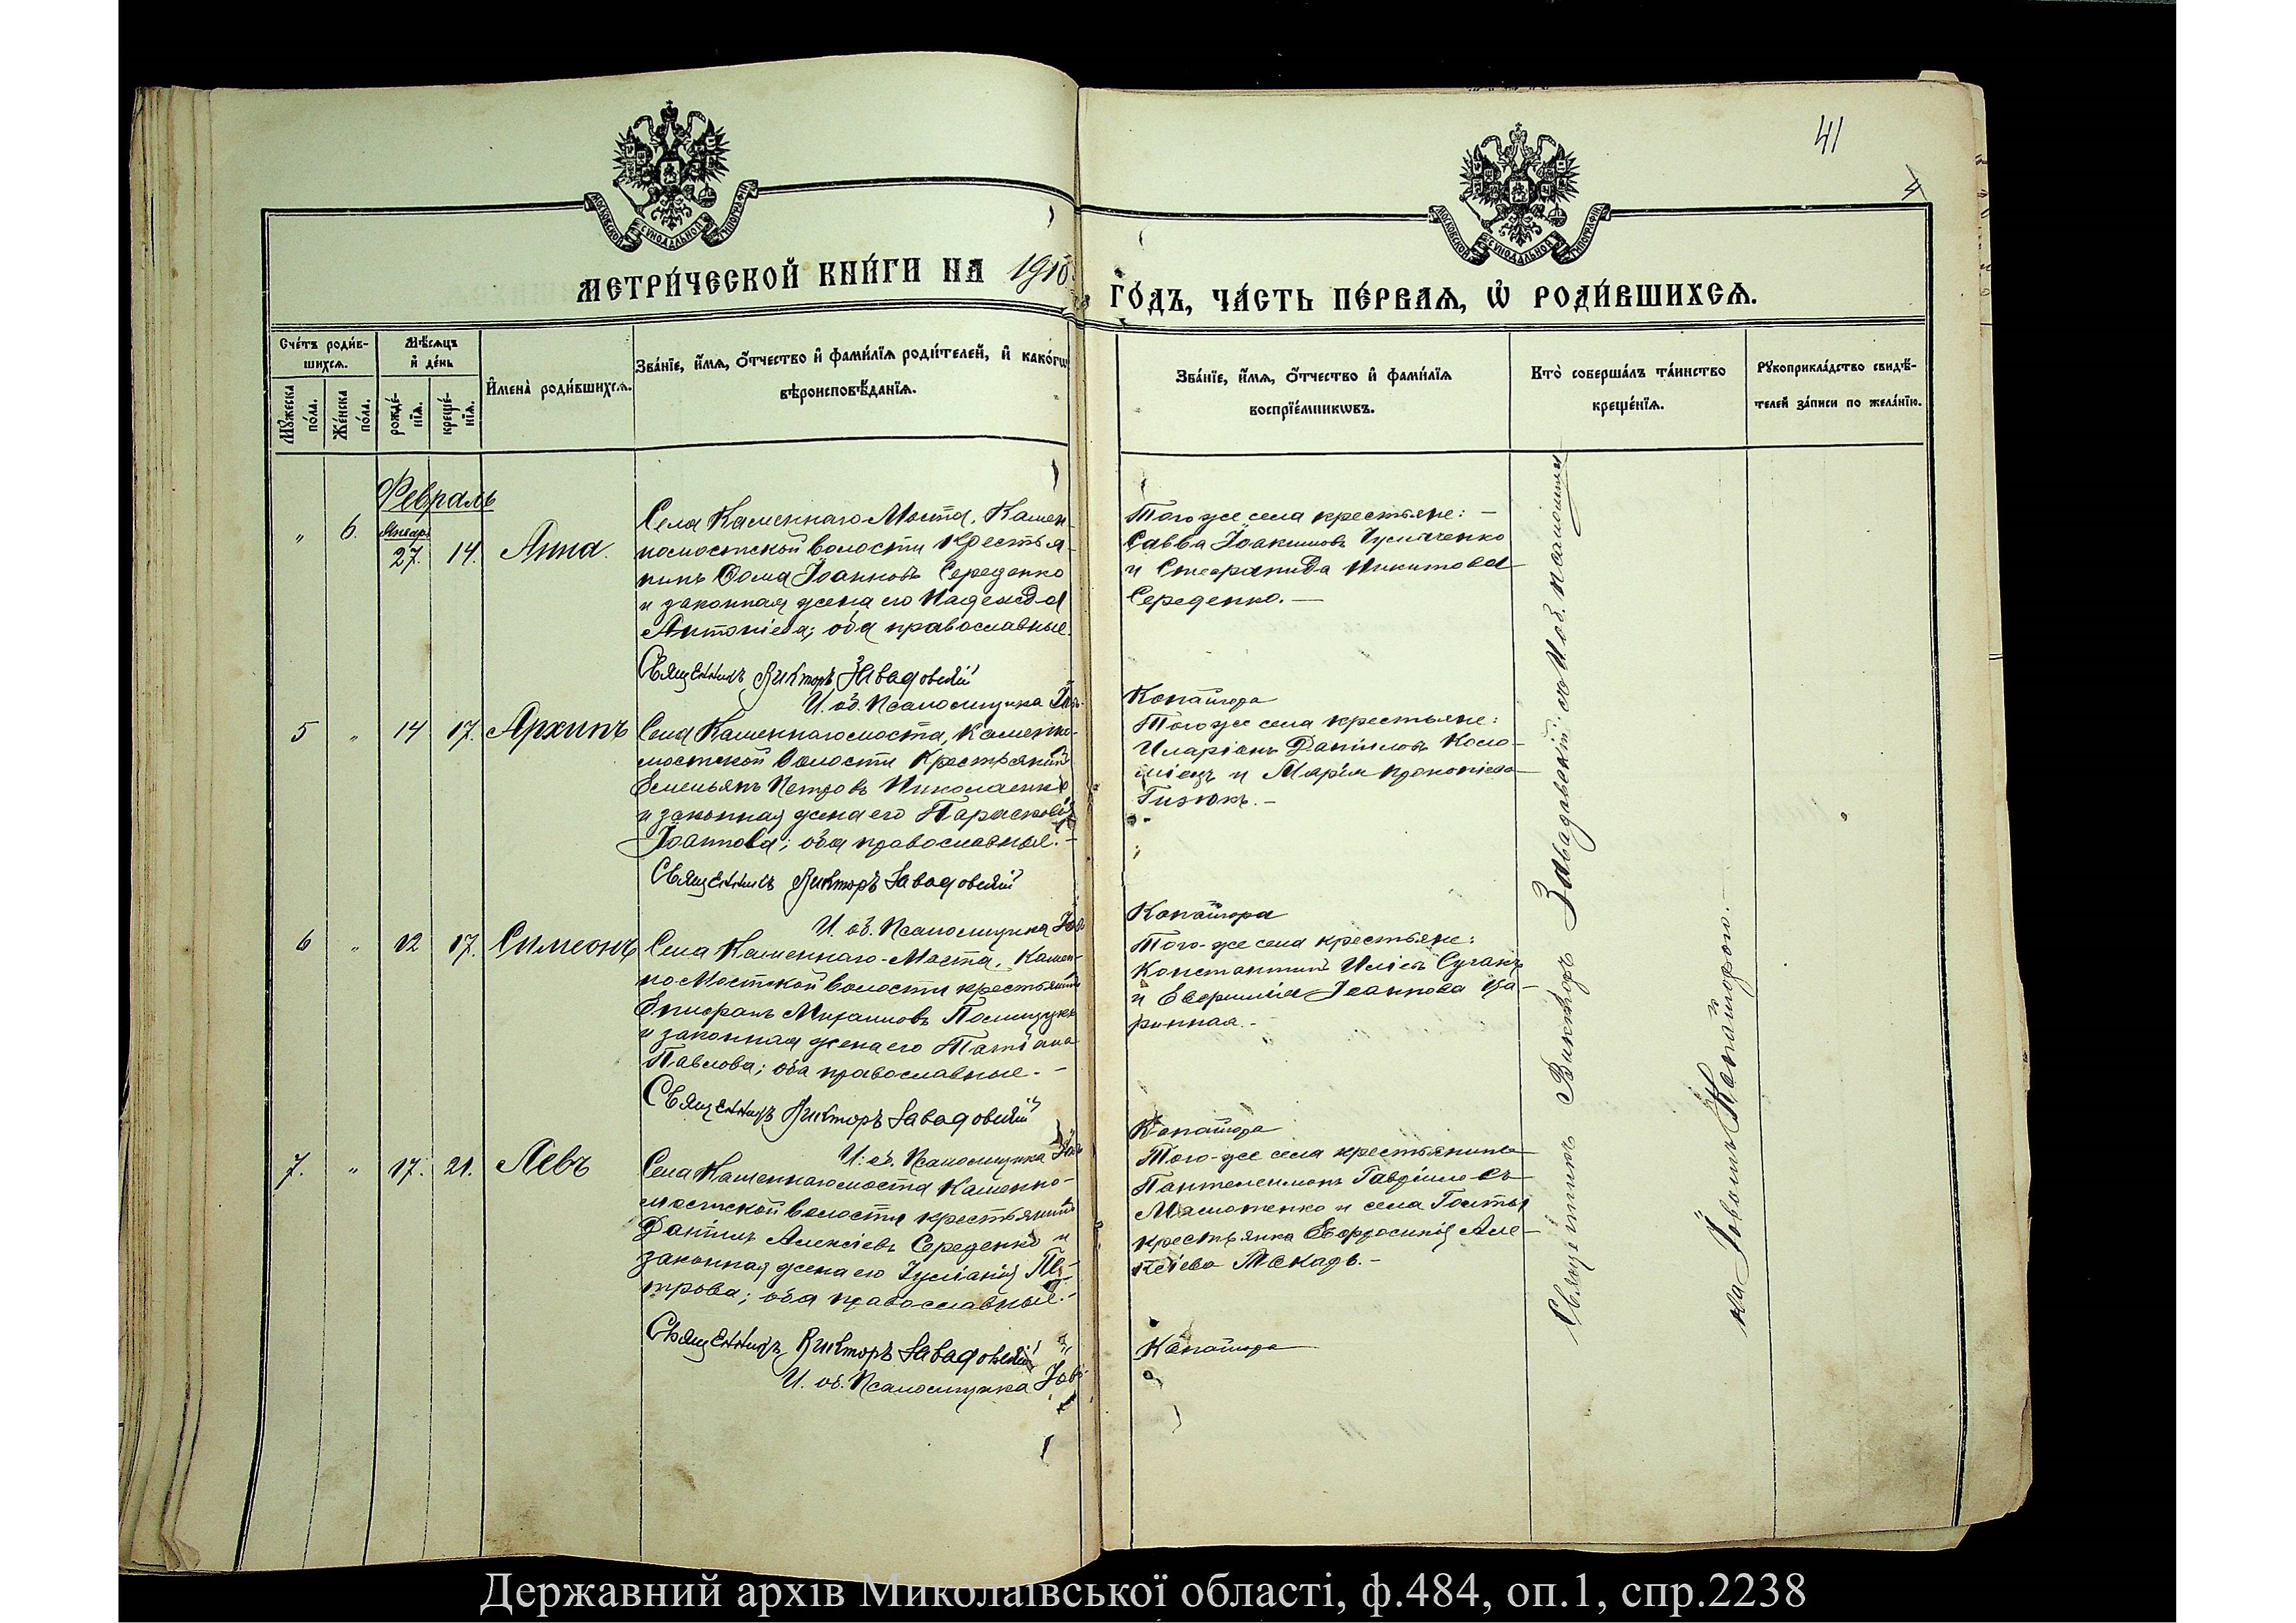 41
4
МОСКОВСКОЙ СѴНОДАЛЬНОЙ ТИПОГРАФІИ
МОСКОВСКОЙ СѴНОДАЛЬНОЙ ТИПОГРАФІИ
МЕТРИ́ЧЕСКОЙ КНИ́ГИ НА 1910
ГО́ДЪ, ЧА́СТЬ ПЕ́РВАѦ, Ѡ҆ РОДИ́ВШИХСѦ.
Сче́тъ роди́в-
шихсѧ.
Мꙋ́жеска
по́ла.
Же́нска
по́ла.
Мѣ́сѧцъ
и҆ де́нь
рожде́-
нїѧ.
креще́-
нїѧ.
И҆мена̀ роди́вшихсѧ.
Зва́нїе, и҆́мѧ, ѻ҆́тчество и҆ фами́лїѧ роди́телей, и҆ како́гѡ
вѣроисповѣ́данїѧ.
Зва́нїе, и҆́мѧ, ѻ҆́тчество и҆ фами́лїѧ
воспрїе́мникѡвъ.
Кто̀ соверша́лъ та́инство
креще́нїѧ.
Рꙋкоприкла́дство свидѣ́-
телей за́писи по жела́нїю.
Февраль
„ 6. Январь 27. 14. Анна.
Села Каменнаго-Моста, Камен-
номостской волости крестья-
нинъ Ѳома Іоанновъ Середенко
и законная жена его Надежда
Антоніева; оба православные.
Священникъ Викторъ Завадовскій
И. об. Псаломщика Іов.
Тогоже села крестьяне: —
Савва Іоакимовъ
и Стефанида Никитова
Середенко. —
Копайгора
5 „ 14 17. Архипъ
Села Каменнагомоста, Каменно-
мостской волости Крестьянинъ
Емельянъ Петровъ Николаенко
и законная жена его Параскевія
Іоаннова; оба православные. —
Священникъ Викторъ Завадовскій
И. об. Псаломщика Іов
Тогоже села крестьяне:
Иларіонъ Даніиловъ Коло-
міецъ и Марія Прокопіева
Гизюкъ. —
Копайгора
6 „ 12 17. Симеонъ
Села Каменнаго-Моста, Камен-
но-Мостской волости крестьянинъ
Епифанъ Михаиловъ Полищукъ
и законная жена его Татіана
Павлова; оба православные. —
Священникъ Викторъ Завадовскій
И. об. Псаломщика Іов
Того-же села крестьяне:
Константинъ Иліевъ
и Евфимія Іоаннова
Копайгора
7. „ 17. 21. Левъ
Села Каменнагомоста Каменно-
мостской волости крестьянинъ
Даніилъ Алексіевъ Середенко и
законная жена его Іуліанія Пе-
трова; оба православные. —
Священникъ Викторъ Завадовскій
И. об. Псаломщика Іов
Того-же села крестьянинъ
Пантелеимонъ Гавріиловъ
и села Голты
крестьянка Евфросинія Але-
ксіева
Копайгора
Священникъ Викторъ Завадовскій съ И. об. псаломщи
ка Іовомъ Копайгорою. —
Державний архів Миколаївської області, ф.484, оп.1, спр.2238